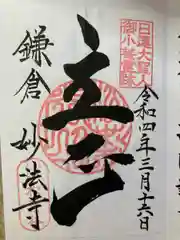 日蓮大聖人
御小菴霊跡
令和四年三月十六日
立正
鎌倉 妙法寺